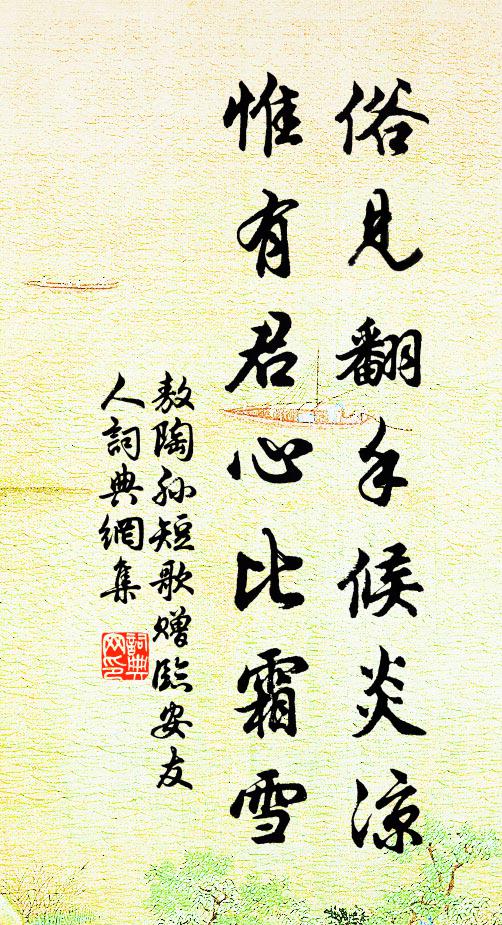 俗見翻手候炎凉
惟有君心比霜雪
敖陶孫短歌贈臨安友
人詞典網集
詞典
网印